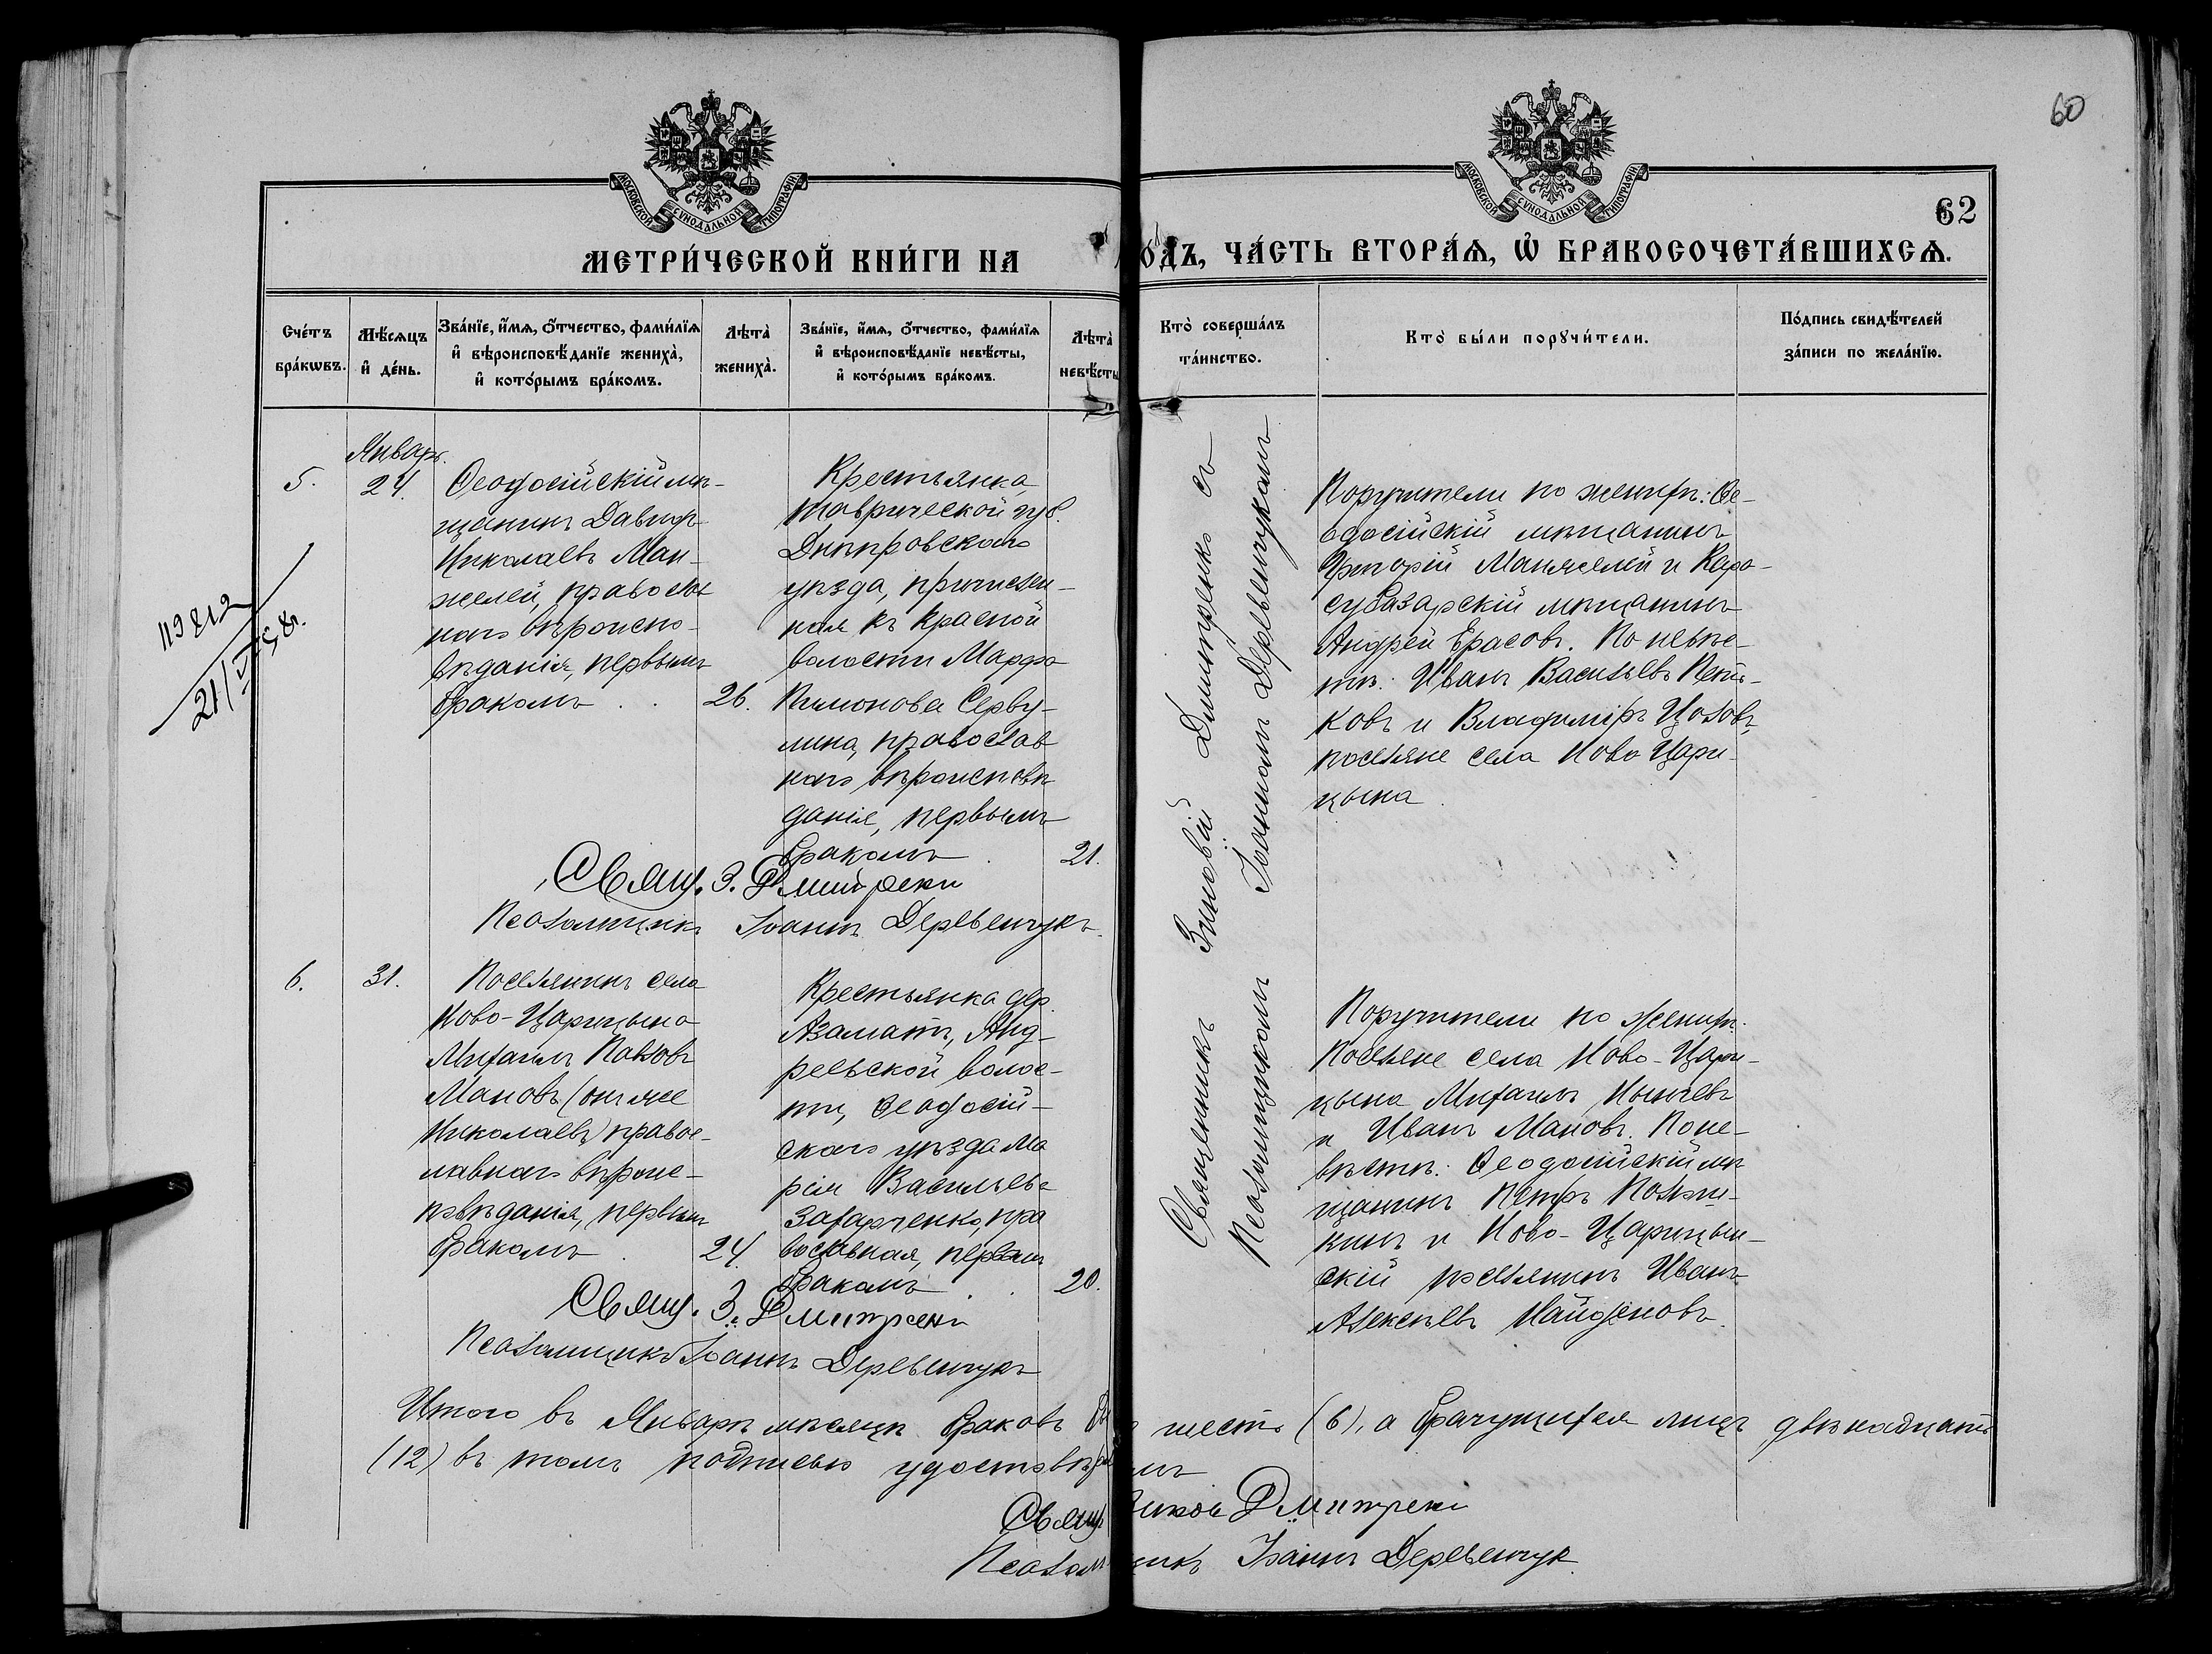 60
62
МОСКОВСКОЙ СѴНОДАЛЬНОЙ ТИПОГРАФІИ
МОСКОВСКОЙ СѴНОДАЛЬНОЙ ТИПОГРАФІИ
МЕТРИ́ЧЕСКОЙ КНИ́ГИ НА
ОДЪ, ЧА́СТЬ ВТОРА́Ѧ, Ѡ҆ БРАКОСОЧЕТА́ВШИХСѦ.
Сче́тъ
бра́кѡвъ.
Мѣ́сѧцъ
и҆ де́нь.
Зва́нїе, и҆́мѧ, ѻ҆́тчество, фами́лїѧ
и҆ вѣроисповѣ́данїе жениха̀,
и҆ кото́рымъ бра́комъ.
Лѣта̀
жениха̀.
Зва́нїе, и҆́мѧ, ѻ҆́тчество, фами́лїѧ
и҆ вѣроисповѣ́данїе невѣ́сты,
и҆ кото́рымъ бра́комъ.
Лѣта̀
невѣ́сты
Кто̀ соверша́лъ
та́инство.
Кто̀ бы́ли порꙋчи́тели.
По́дпись свидѣ́телей
за́писи по жела́нїю.
5.
Январь.
24.
Ѳеодосійскій мѣ-
щанинъ Давидъ
Николаевъ Ман-
желей, православ
наго вѣроиспо-
вѣданія, первымъ
бракомъ
26.
Крестьянка
Таврической губ.
Днѣпровскаго
уѣзда, причислен-
ная къ Красной
волости Марфа
Пимонова Серву-
лина, православ
наго вѣроисповѣ
данія, первымъ
бракомъ
21.
Свящ. З. Дмитренко
Псаломщикъ Іоаннъ Деревенчукъ.
Священникъ Зиновій Дмитренко съ
Псаломщикомъ Іоанномъ Деревенчукомъ
Поручители по женихѣ: Ѳе-
одосійскій мѣщанинъ
Григорій Манжелей и Кара-
субазарскій мѣщанинъ
Андрей Ерасовъ. По невѣс-
тѣ: Иванъ Васильевъ
ковъ и Владиміръ Цоловъ,
поселяне села Ново Цари-
цына.
6.
31.
Поселянинъ села
Ново-Царицына
Михаилъ Павловъ
Мановъ (онъ же
Николаевъ) правос-
лавнаго вѣроис-
повѣданія, первымъ
бракомъ
24.
Крестьянка дер.
Азаматъ, Анд-
реевской волос-
ти, Ѳеодосій-
скаго уѣзда Ма
рія Васильева
Захарченко, пра
вославная, первымъ
бракомъ
20.
Свящ. З. Дмитренко
Псаломщикъ Іоаннъ Деревенчукъ
Поручители по женихѣ.
Поселяне села Ново-Цари-
цына Михаилъ
и Иванъ Мановъ. По не-
вѣстѣ: Ѳеодосійскій мѣ
щанинъ Петръ
кинъ и Ново-Царицын-
скій поселянинъ Иванъ
Алексѣевъ Найденовъ.
Итого въ Январѣ мѣсяцѣ браковъ шесть (6), а брачущихся лицъ двѣнадцать
(12) въ томъ подписью удостовѣряемъ
Свящ. Дмитренко
Псаломщикъ Іоаннъ Деревенчук.